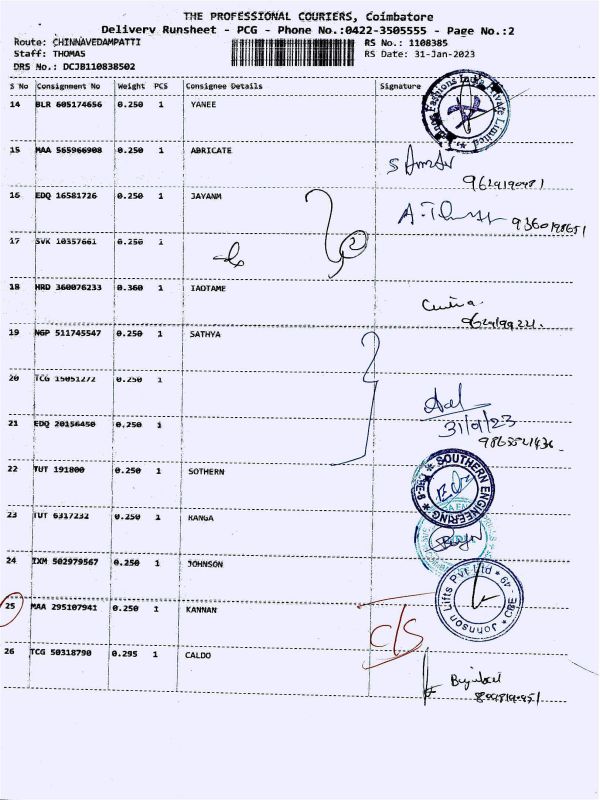 THE PROFESSIONAL COURIERS, Coimbatore
Delivery Runsheet - PCG - Phone No.:0422-3505555 - Page No.:2
Route: CHINNAVEDAMPATTI RS No.: 1108385
Staff: THOMAS RS Date: 31-Jan-2023
DRS No.: DCJB110838502
S No Consignment No Weight PCS Consignee Details Signature
14 BLR 605174656 0.250 1 YANEE
Fashions India Private Limited
15 MAA 565966908 0.250 1 ABRICATE
16 EDQ 16581726 0.250 1 JAYANM
17 SVK 10357661 0.250 1
18 HRD 360076233 0.360 1 IAOTAME
19 NGP 511745547 0.250 1 SATHYA
20 TCG 15051272 0.250 1
21 EDQ 20156450 0.250 1
22 TUT 191800 0.250 1 SOTHERN
SOUTHERN ENGINEERING
23 TUT 6317232 0.250 1 KANGA
24 IXM 502979567 0.250 1 JOHNSON
Johnson Lifts Pvt Ltd CBE - 49
25 MAA 295107941 0.250 1 KANNAN C/S
26 TCG 50318790 0.295 1 CALDO